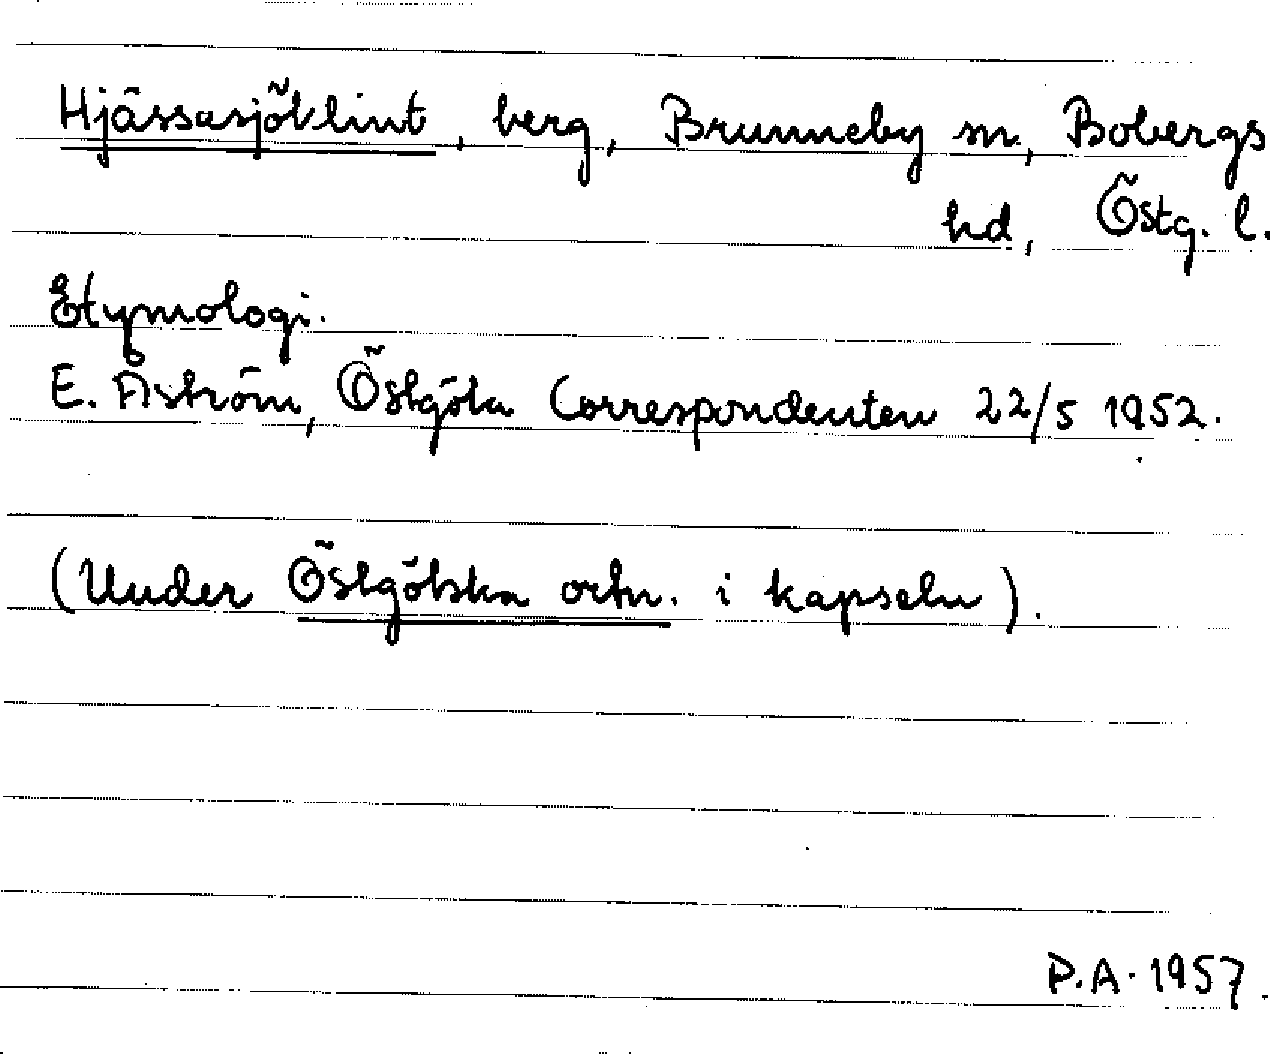 Hjässasjöklint, berg, Brunneby sn, Bobergs
hd, Östg. l.
Etymologi.
E. Åström, Östgöta Correspondenten 22/5 1952.
(Under Östgötska ortn. i kapseln).
P.A. 1957.